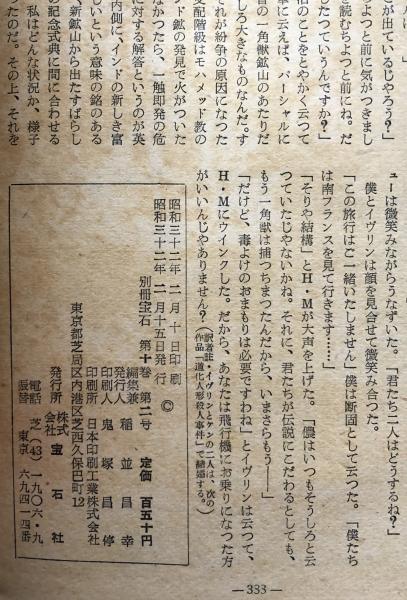 が出ているじやろう？」
よつと前に気がつきまし
を読むちよつと前にね。だ
したつていうんですか？」
ドのことをとやかく云つて
単に云えば、パーシャルに
昔の一角獣鉱山のあたりだ
しろ大きなものなんだ。す
それが紛争の原因になつた
支配階級はモハメッド教の
ンド鉱の発見で火がついた
なかつたら、一触即発の危
に対する解答というのが英
内側に、インドの新しき富
しいという意味の銘のある
新鉱山から出たすばらし
の記念式典に間に合わせる
私はどんな状況か、様子
たのだ。その上、それを
ューは微笑みながらうなずいた。「君たち二人はどうするね？」
僕とイヴリンは顔を見合せて微笑み合つた。
「この旅行はご一緒いたしません」僕は断固として云つた。「僕たち
は南フランスを見て行きます……」
「そりや結構」とH・Mが大声を上げた。「儂はいつもそうしろと云
つていたじやないかね。それに、君たちが伝説にこだわるとしても、
もう一角獣は捕つちまつたんだから、いまさらもう――」
「だけど、毒よけのおまもりは必要ですわね」とイヴリンは云つて、
H・Mにウインクした。だから、あなたは飛行機にお乗りになつた方
がいいんじやありません？」
（訳者註・イヴリンとケンの二人は、次の
作品「道化人形殺人事件」で結婚する。）
昭和三十二年二月十日印刷
昭和三十二年二月十五日発行 ©
別冊宝石 第十巻 第二号 定価 百五十円
編集兼
発行人 稲並昌幸
印刷人 鬼塚昌停
印刷所 日本印刷工業株式会社
東京都芝局区内港区芝西久保巴町12
発行所 株式会社 宝石社
電話 芝(43)一九〇六・九
振替 東京 六九四一四番
—333—